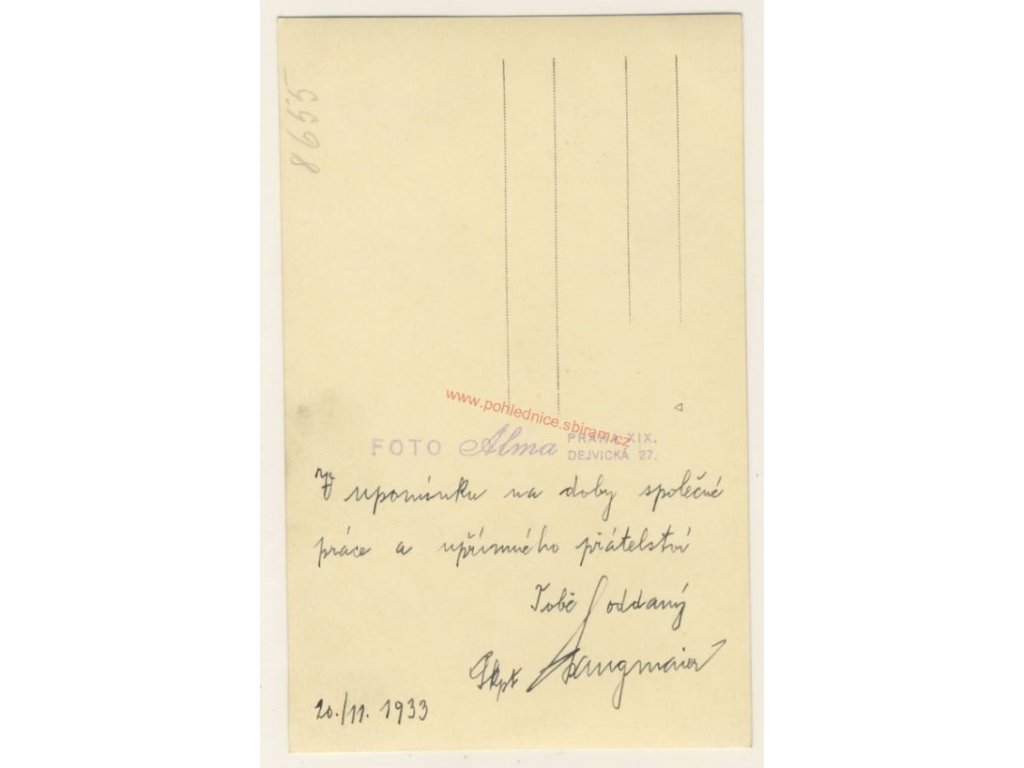 8655
www.pohlednice.sbiram.cz
FOTO Alma PRAHA XIX.
DEJVICKÁ 27.
V upomínku na doby společné
práce a upřímného přátelství
Tobě oddaný
Škpt Langmaier
20./11. 1933